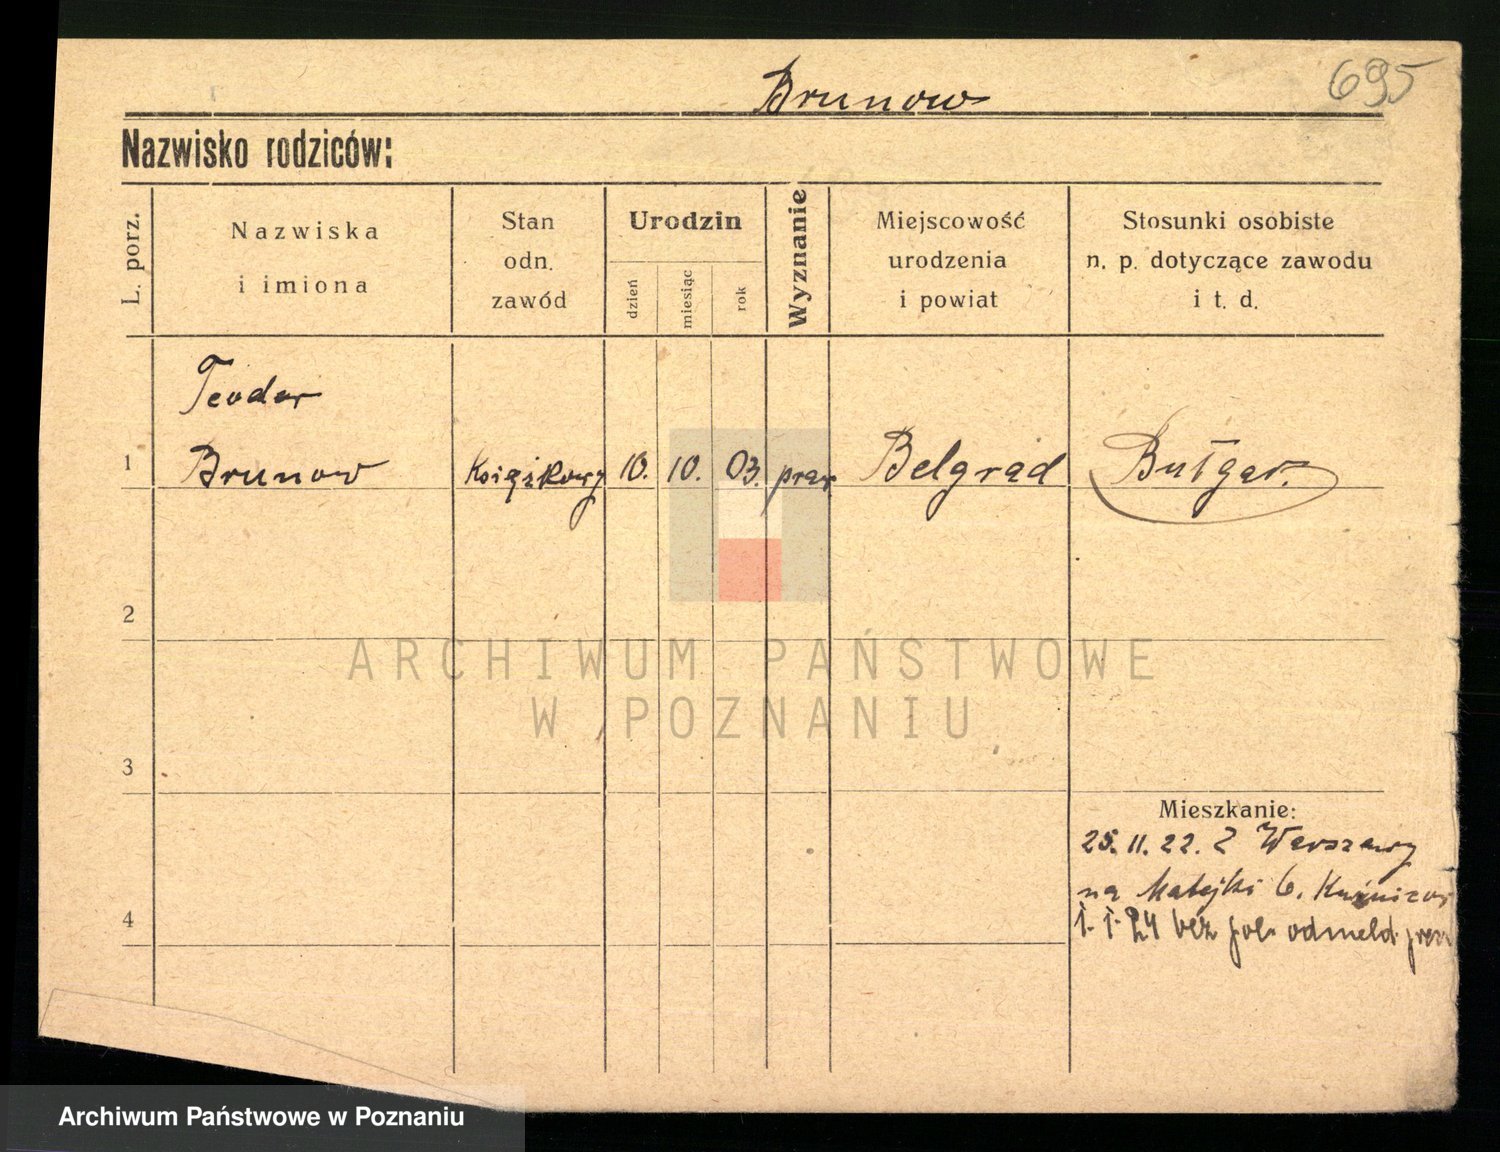 695
Brunow
Nazwisko rodziców:
L. porz.
Nazwiska
i imiona
Stan
odn.
zawód
Urodzin
dzień
miesiąc
rok
Wyznanie
Miejscowość
urodzenia
i powiat
Stosunki osobiste
n. p. dotyczące zawodu
i t. d.
Teodor
1 Brunow Książkowy 10. 10. 03. praw Belgrad Bułgar.
2
ARCHIWUM PAŃSTWOWE
W POZNANIU
3
Mieszkanie:
25. 11. 22. Z Warszawy
na Matejki 6.
4
1. 1. 24 bez odmeld.
Archiwum Państwowe w Poznaniu